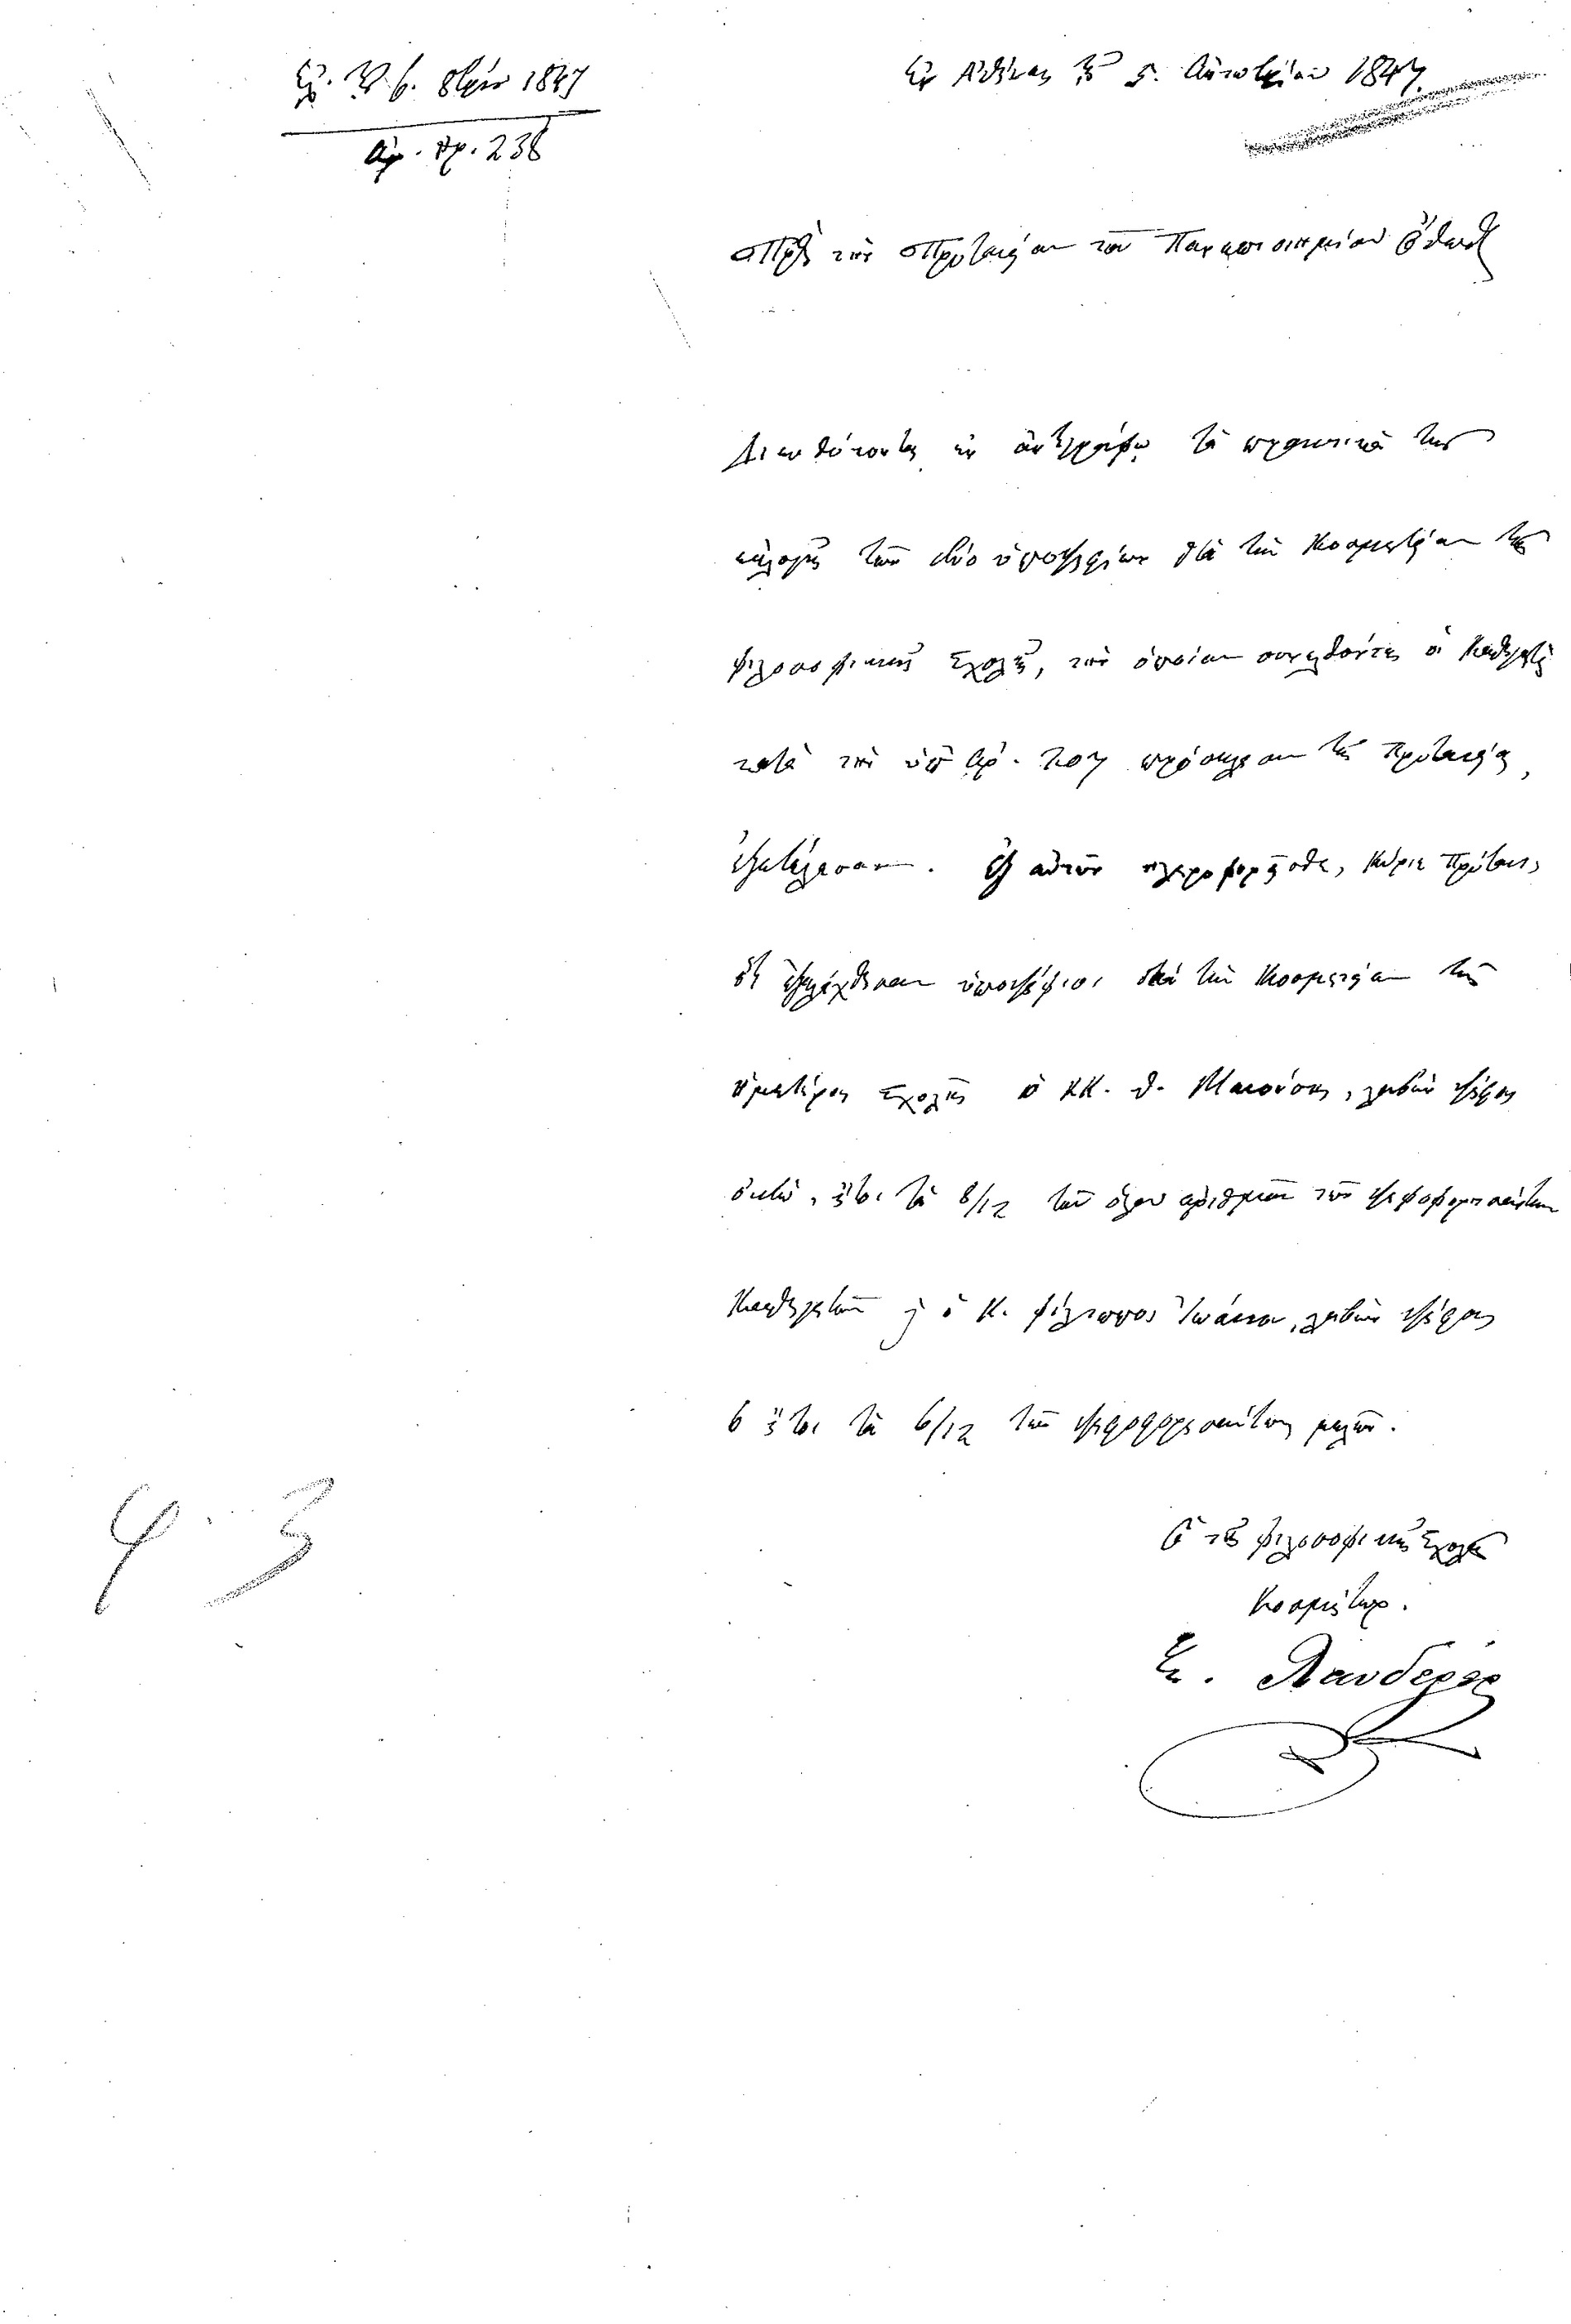 Ἐλ. τὴν 6. 8βρίου 1847
Ἀρ. πρ. 238
Ἐν Ἀθήναις τὴν 5. Ὀκτωβρίου 1847.
Πρὸς τὴν Πρυτανείαν τοῦ Πανεπιστημίου Ὄθωνος
Διευθύνονται ἐν ἀντιγράφῳ τὰ πρακτικὰ τῆς
ἐκλογῆς τῶν δύο ὑποψηφίων διὰ τὴν Κοσμητείαν τῆς
φιλοσοφικῆς Σχολῆς, τὴν ὁποίαν συνελθόντες οἱ Καθηγηταὶ
κατὰ τὴν ὑπ' ἀρ. πρόσκλησιν τῆς Πρυτανείας,
ἐξετέλεσαν. Ἐξ αὐτῶν πληροφορεῖσθε, Κύριε Πρύτανι,
ὅτι ἐξελέχθησαν ὑποψήφιοι διὰ τὴν Κοσμητείαν τῆς
ἡμετέρας Σχολῆς ὁ ΚΚ. Θ. Μανούσης, λαβὼν ψήφους
ὀκτὼ, ἤτοι τὰ 8/12 τοῦ ὅλου ἀριθμοῦ τῶν ψηφοφορησάντων
Καθηγητῶν ὁ Κ. Φίλιππος Ἰωάννου, λαβὼν ψήφους
6 ἤτοι τὰ 6/12 τῶν ψηφοφορησάντων μελῶν.
Ὁ τῆς φιλοσοφικῆς Σχολῆς
Κοσμήτωρ.
Ξ. Λάνδερερ